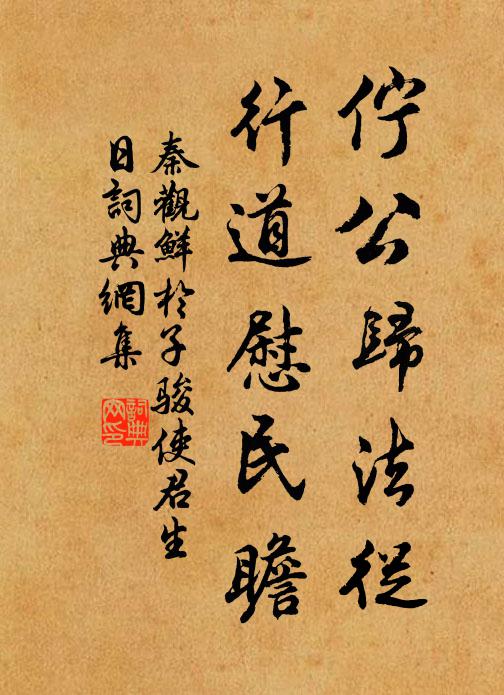 佇公歸法從
行道慰民瞻
秦觀鮮於子駿使君生
日詞典網集
詞典網印